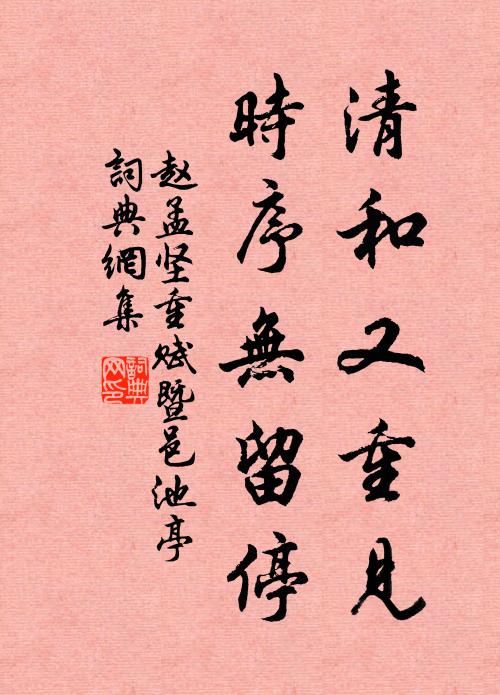 清和又重见
時序無留停
赵孟坚重赋暨邑池亭
詞典網集
詞典
网印